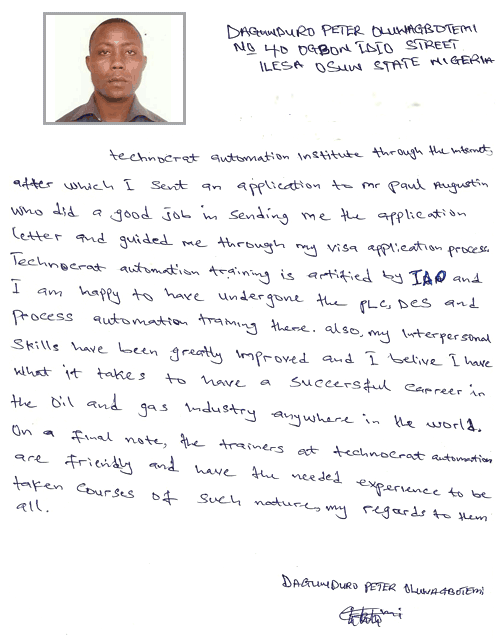 DAGUNDURO PETER OLUWAGBOTEMI
NO 40 OGBON IDIO STREET
ILESA OSUN STATE NIGERIA
technocrat automation institute through the internet,
after which I sent an application to mr Paul Augustin
who did a good job in sending me the application
letter and guided me through my visa application process.
Technocrat automation training is certified by IAO and
I am happy to have undergone the PLC, DCS and
process automation training there. also, my interpersonal
skills have been greatly improved and I belive I have
what it takes to have a successful carreer in
the oil and gas industry anywhere in the world.
On a final note, the trainers at technocrat automation
are friendly and have the needed experience to be
taken courses of such nature, my regards to them
all.
DAGUNDURO PETER OLUWAGBOTEMI